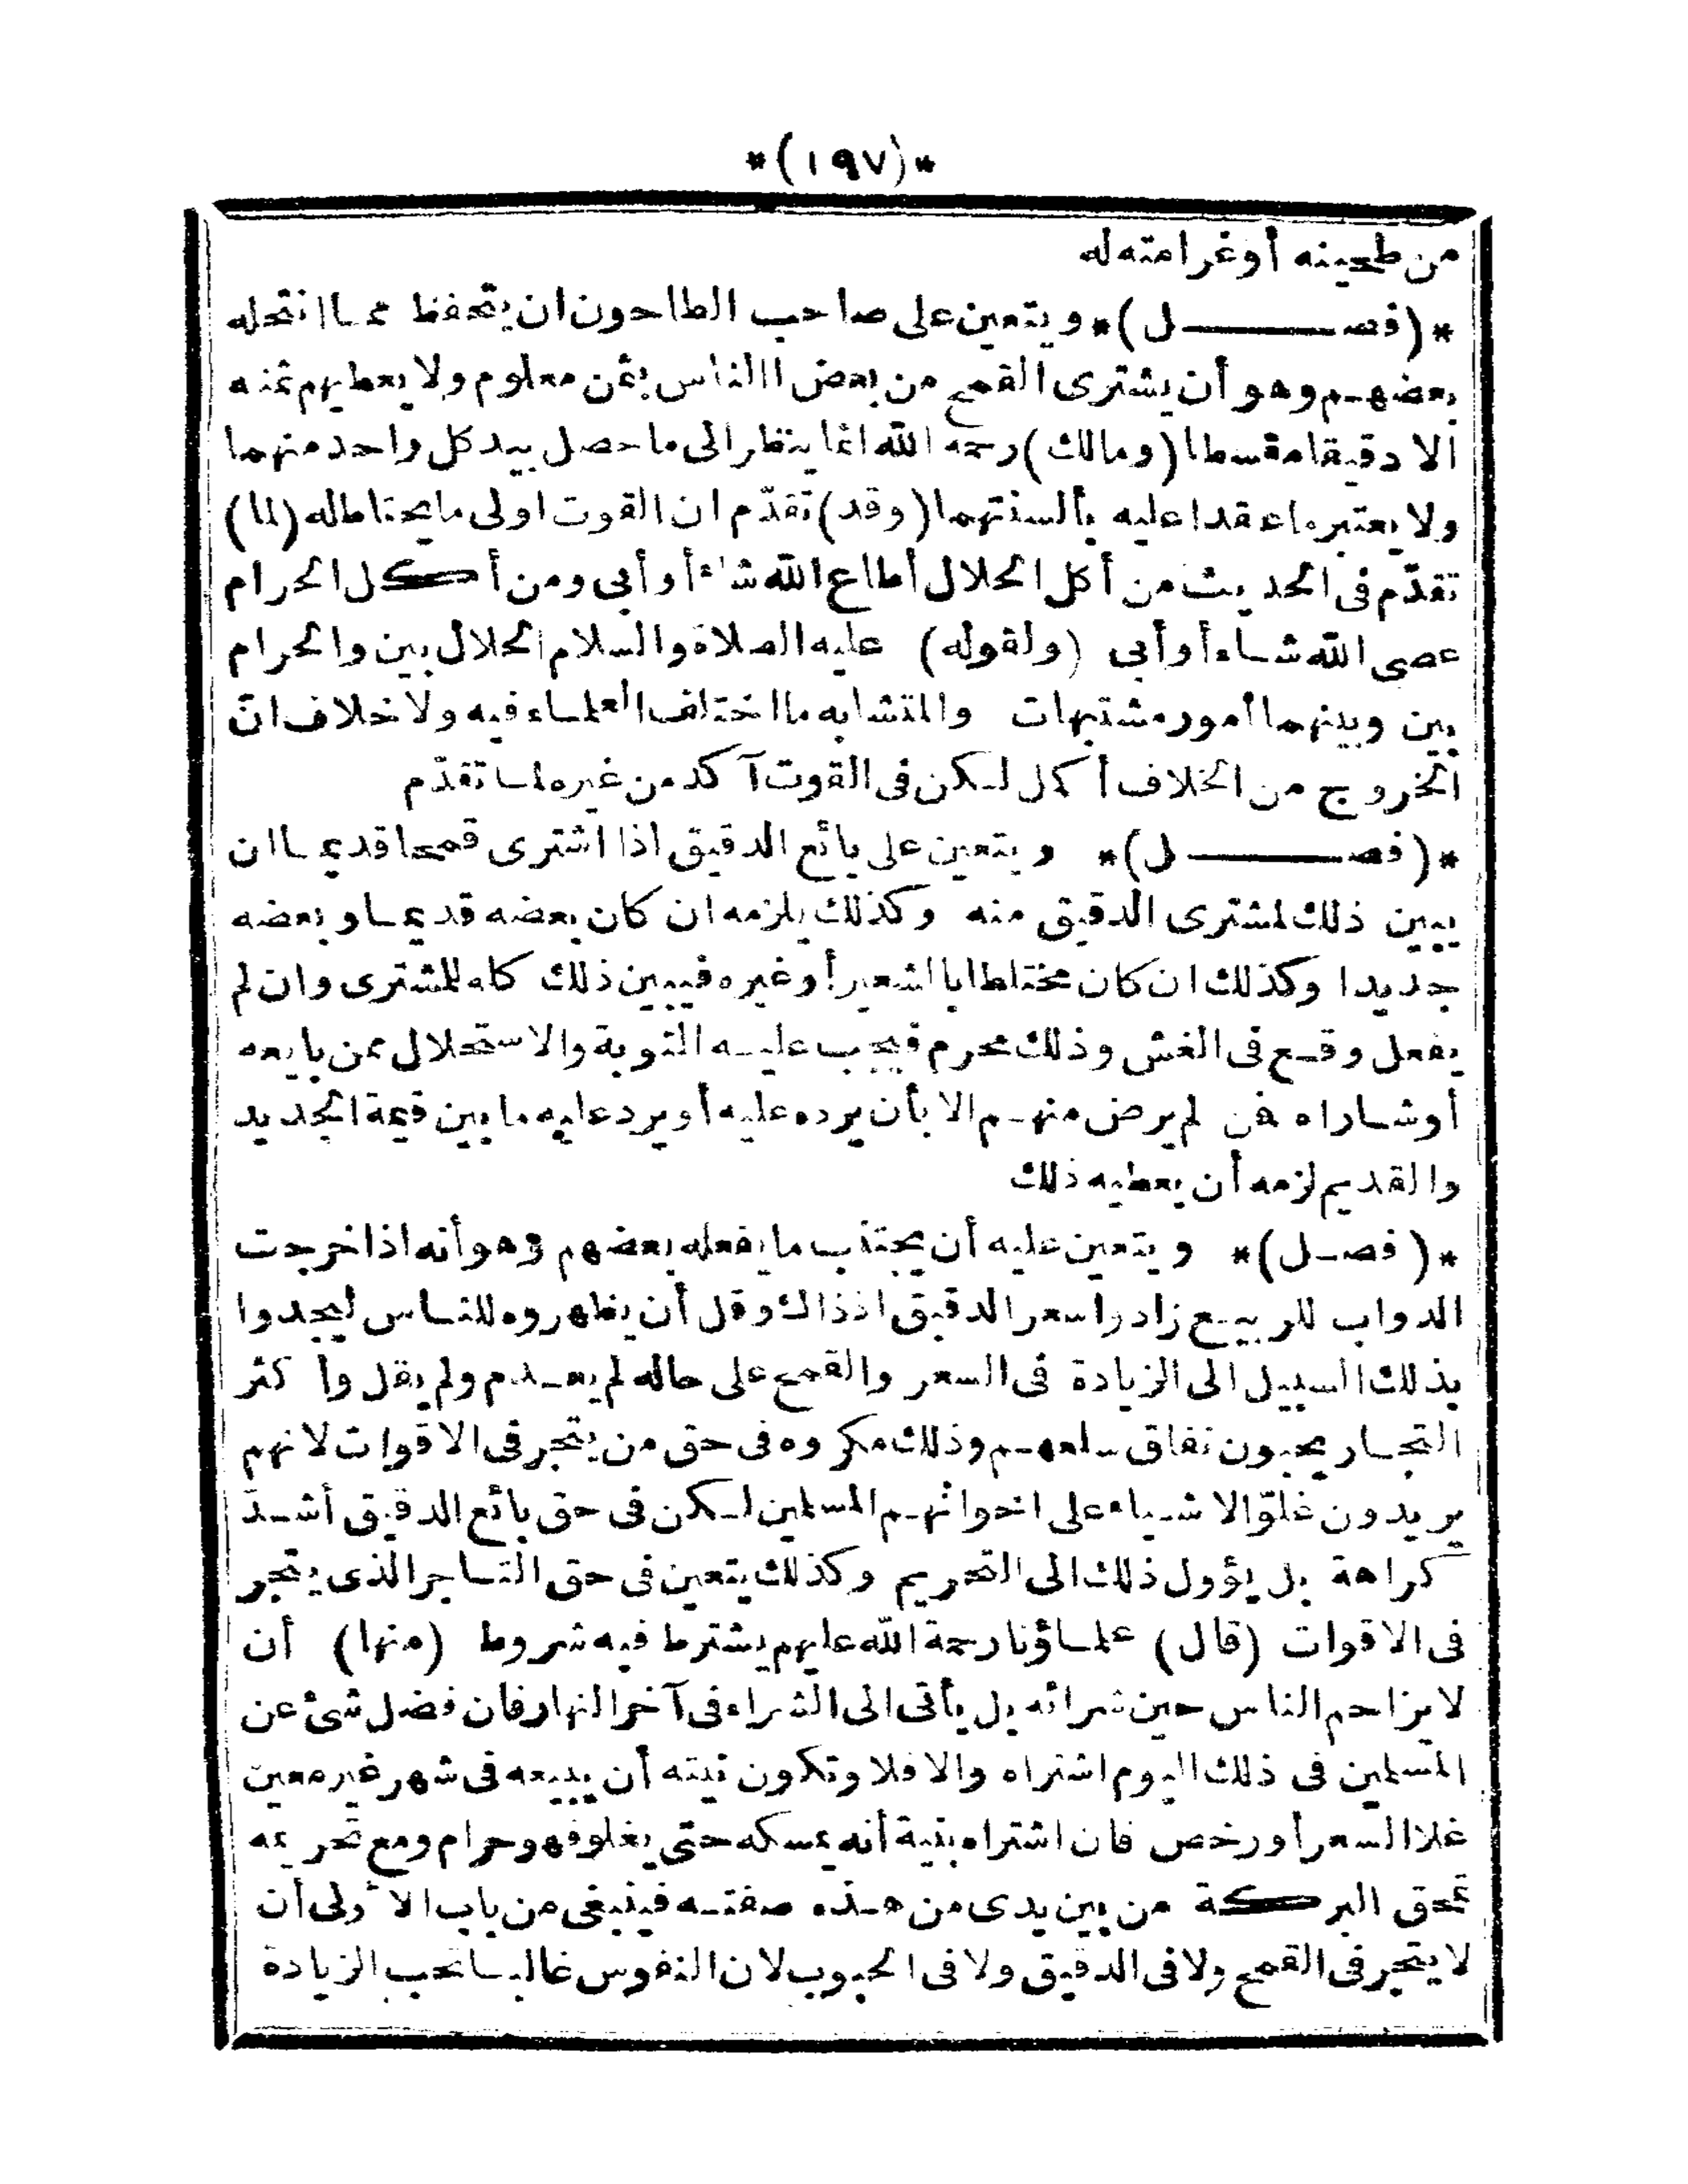 *(١٩٧)*
من طحينه أو غرامته له
*(فصـــــل)* ويتعين على صاحب الطاحون ان يتحفظ مما انتحله
بعضهم وهو أن يشترى القمح من بعض الناس بثمن معلوم ولا يعطيهم ثمنه
الا دقيقا مقسطا (ومالك) رحمه الله انما ينظر الى ما حصل بيد كل واحد منهما
ولا يعتبر ما عقدا عليه بألسنتهما (وقد) تقدّم ان القوت اولى ما يحتاط له (لما)
تقدّم فى الحديث من أكل الحلال أطاع الله شاء أو أبى ومن أكل الحرام
عصى الله شاء أو أبى (ولقوله) عليه الصلاة والسلام الحلال بين والحرام
بين وبينهما أمور مشتبهات والمتشابه ما اختلف العلماء فيه ولا خلاف انّ
الخروج من الخلاف أكمل لكن فى القوت آكد من غيره لما تقدّم
*(فصـــــل)* ويتعين على بائع الدقيق اذا اشترى قمحا قديما ان
يبين ذلك لمشترى الدقيق منه وكذلك يلزمه ان كان بعضه قديما وبعضه
جديدا وكذلك ان كان مختلطا بالشعير أو غيره فيبين ذلك كله للمشترى وان لم
يفعل وقع فى الغش وذلك محرم فيجب عليه التوبة والاستحلال ممن بايعه
أو شاراه فمن لم يرض منهم الا بأن يرده عليه أو يرد عليه ما بين قيمة الجديد
والقديم لزمه أن يعطيه ذلك
*(فصـل)* ويتعين عليه أن يجتنب ما يفعله بعضهم وهو أنه اذا خرجت
الدواب للربيع زادوا سعر الدقيق اذ ذاك وقل أن يظهروه للناس ليجدوا
بذلك السبيل الى الزيادة فى السعر والقمح على حاله لم يعدم ولم يقل وأكثر
التجار يحبون نفاق سلعهم وذلك مكروه فى حق من يتجر فى الاقوات لانهم
يريدون غلوّ الاشياء على اخوانهم المسلمين لكن فى حق بائع الدقيق أشدّ
كراهة بل يؤول ذلك الى التحريم وكذلك يتعين فى حق التاجر الذى يتجر
فى الاقوات (قال) علماؤنا رحمة الله عليهم يشترط فيه شروط (منها) أن
لا يزاحم الناس حين شرائه بل يأتى الى الشراء فى آخر النهار فان فضل شئ عن
المسلمين فى ذلك اليوم اشتراه والا فلا وتكون نيته أن يبيعه فى شهر غير معين
غلا السعر أو رخص فان اشتراه بنية أنه يمسكه حتى يغلو فهو حرام ومع تحريمه
تمحق البركة من بين يدى من هذه صفته فينبغى من باب الأولى أن
لا يتجر فى القمح ولا فى الدقيق ولا فى الحبوب لان النفوس غالبا تحب الزيادة